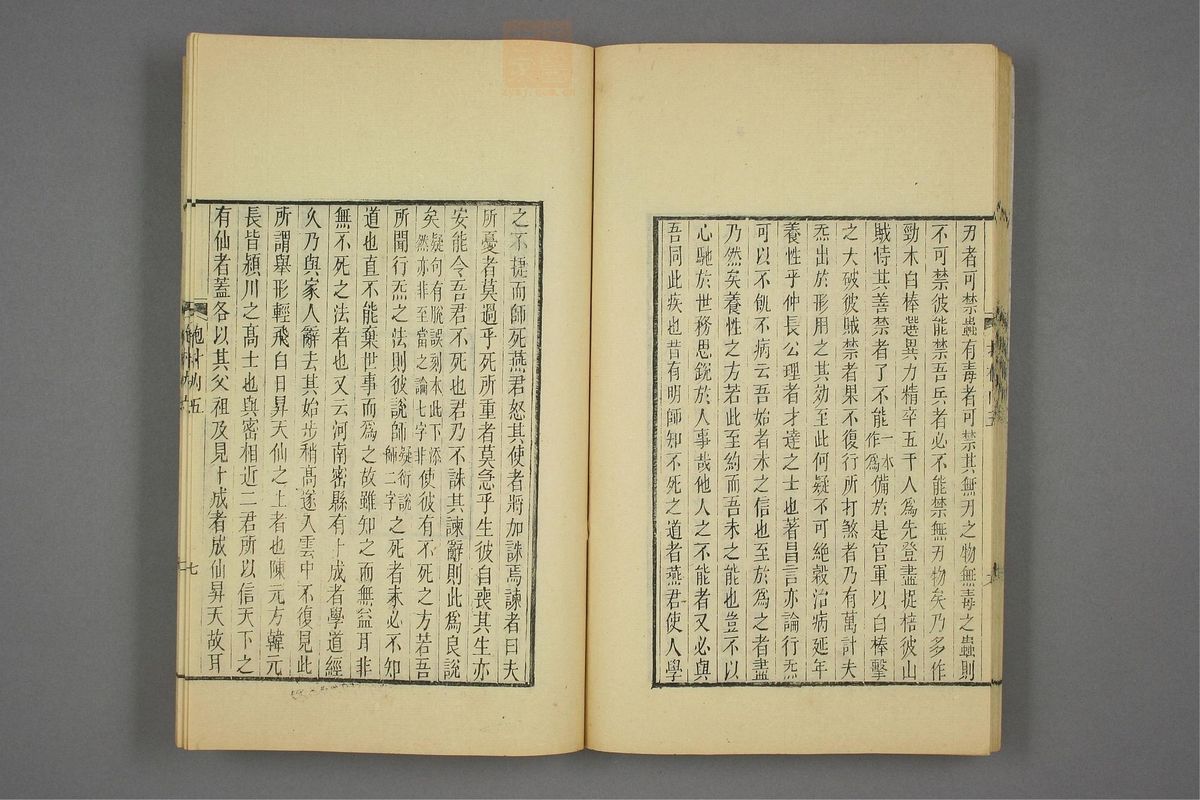 刃者可禁蟲有毒者可禁其無刃之物無毒之蟲則
不可禁彼能禁吾兵者必不能禁無刃物矣乃多作
勁木白棒選異力精卒五千人爲先登盡捉棓彼山
賊恃其善禁者了不能一本作爲備於是官軍以白棒擊
之大破彼賊禁者果不復行所打煞者乃有萬計夫
炁出於形用之其効至此何疑不可絶穀治病延年
養性乎仲長公理者才達之士也著昌言亦論行炁
可以不飢不病云吾始者未之信也至於爲之者盡
乃然矣養性之方若此至約而吾未之能也豈不以
心馳於世務思銳於人事哉他人之不能者又必與
吾同此疾也昔有明師知不死之道者燕君使人學
之不捷而師死燕君怒其使者將加誅焉諫者曰夫
所憂者莫過乎死所重者莫急乎生彼自喪其生亦
安能令吾君不死也君乃不誅其諫辭則此爲良說
矣疑句有脫誤刻本此下添然亦非至當之論七字非使彼有不死之方若吾
所聞行炁之法則彼說師疑衍說師二字之死者未必不知
道也直不能棄世事而爲之故雖知之而無益耳非
無不死之法者也又云河南密縣有卜成者學道經
久乃與家人辭去其始步稍高遂入雲中不復見此
所謂舉形輕飛白日昇天仙之上者也陳元方韓元
長皆潁川之高士也與密相近二君所以信天下之
有仙者蓋各以其父祖及見卜成者成仙昇天故耳
抱朴內五
七